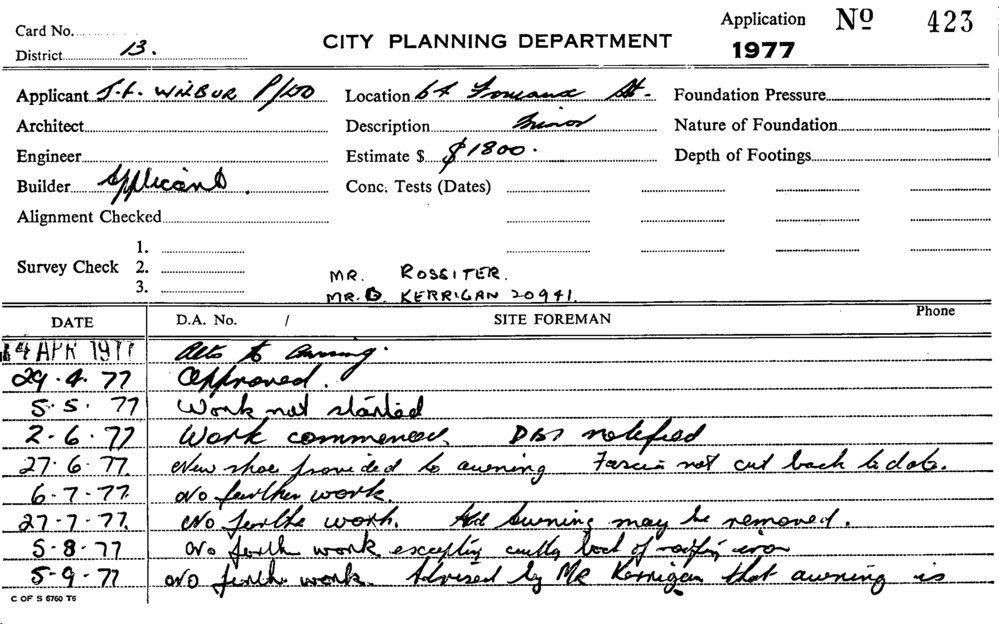 Card No.
District 13.
CITY PLANNING DEPARTMENT
Application Nº 423
1977
Applicant J.F. WILBUR P/LTD Location 64 Foveaux St. Foundation Pressure
Architect Description Minor Nature of Foundation
Engineer Estimate $ $1800. Depth of Footings
Builder Applicant. Conc. Tests (Dates)
Alignment Checked
Survey Check
1.
2.
3.
MR. ROSSITER.
MR. KERRIGAN 20941.
DATE D.A. No. / SITE FOREMAN Phone
4 APR 1977 Alts to awning.
29.4.77 Approved.
5.5.77 Work not started
2-6.77 Work commenced. notified
27.6.77. New shoe provided to awning Fascia not cut back to date.
6-7-77. No further work.
27-7-77. No further work. awning may be removed.
5-8-77 No further work excepting cutting back of roofing iron
5-9-77 No further work. Advised by Mr Kerrigan that awning is
C OF S 6760 T6